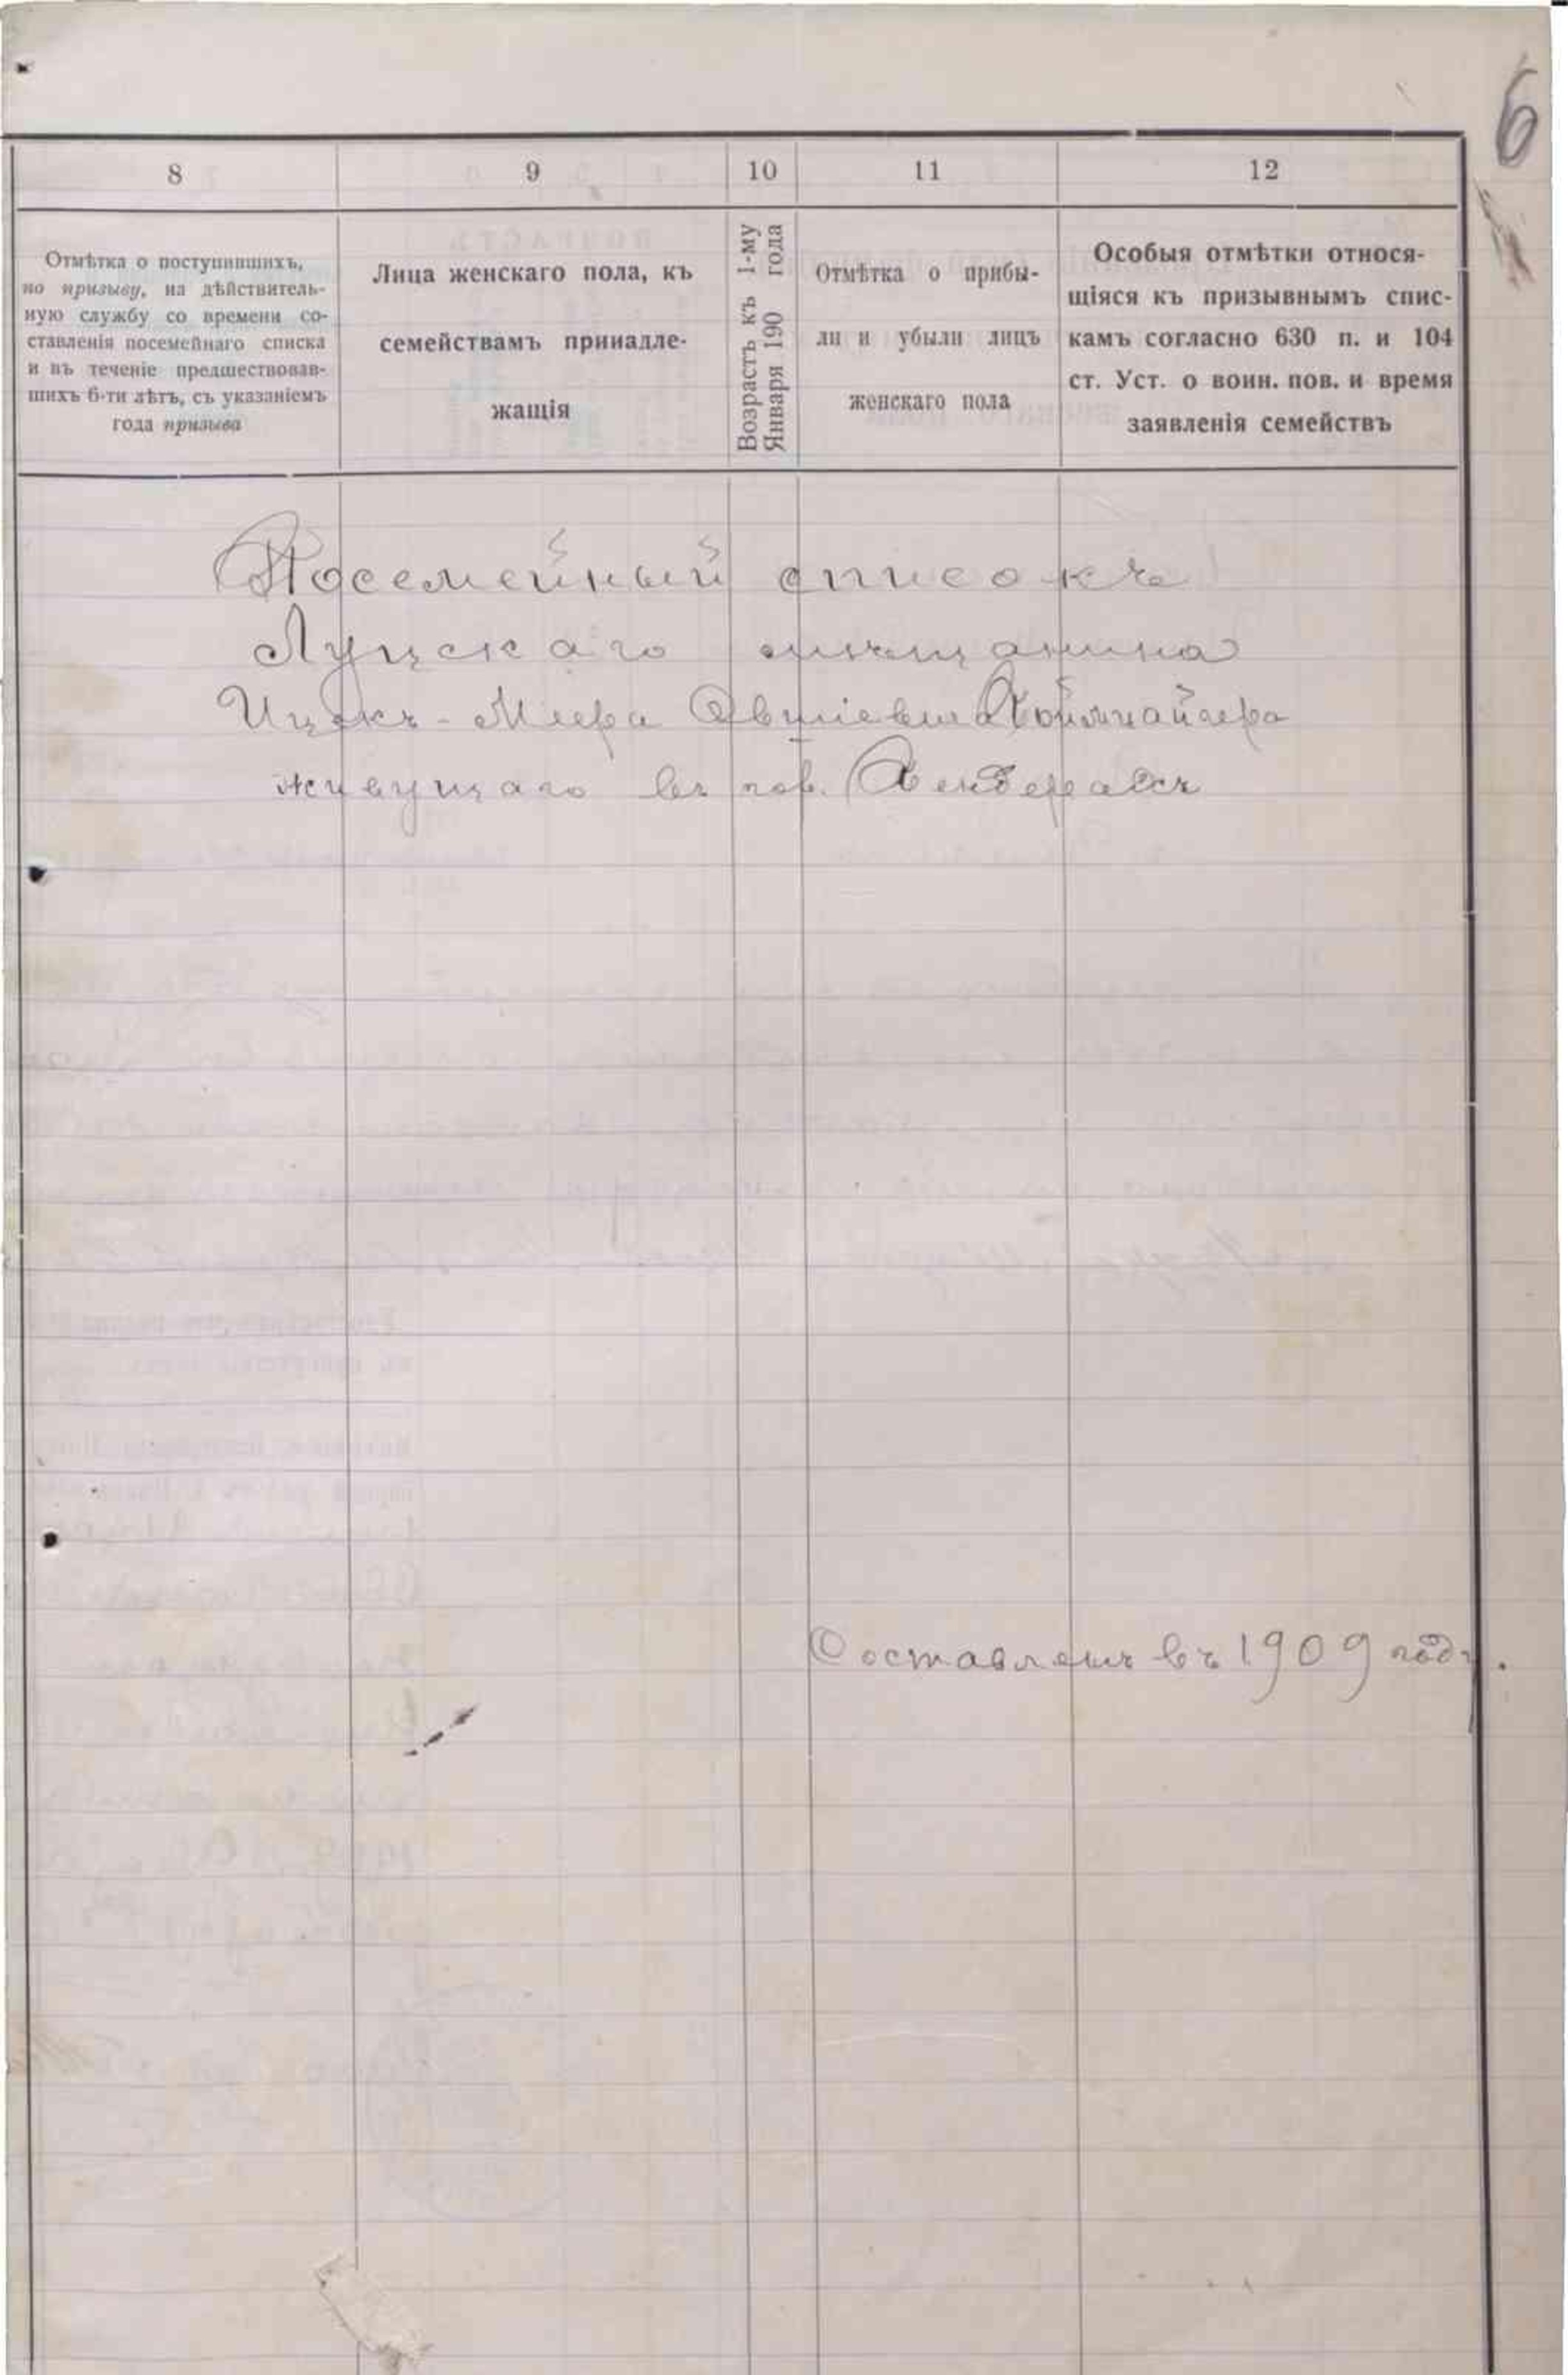 6
8 9 10 11 12
Отмѣтка о поступившихъ,
по призыву, на дѣйствитель-
ную службу со времени со-
ставленія посемейнаго списка
и въ теченіе предшествовав-
шихъ 6-ти лѣтъ, съ указаніемъ
года призыва
Лица женскаго пола, къ
семействамъ принадле-
жащія
Возрастъ къ 1-му
Января 190 года
Отмѣтка о прибы-
ли и убыли лицъ
женскаго пола
Особыя отмѣтки относя-
щіяся къ призывнымъ спис-
камъ согласно 630 п. и 104
ст. Уст. о воин. пов. и время
заявленія семействъ
Посемейный списокъ
Луцскаго мѣщанина
Ицекъ-Меера
живущаго въ гор.
Составленъ въ 1909 году.